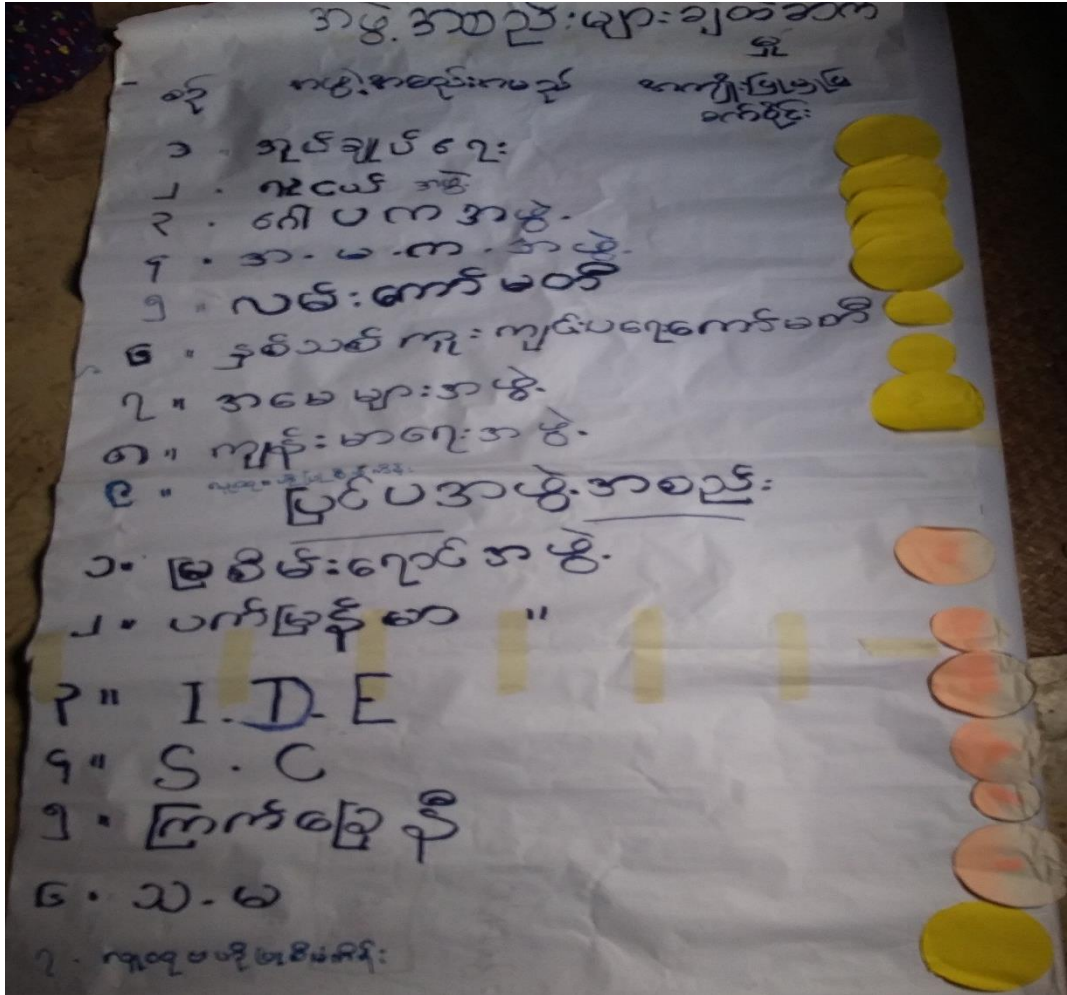 အဖွဲ့အစည်းများချိတ်ဆက်
မှု
စဉ် အဖွဲ့အစည်းအမည် အကျိုးပြုမှုပြ
စက်ဝိုင်း
၁ အုပ်ချုပ်ရေး
၂ . လူငယ် အဖွဲ့
၃ . ဂေါပကအဖွဲ့.
၄ . အ.မ.က.အဖွဲ့.
၅ " လမ်းကော်မတီ
၆ " နှစ်သစ်ကူးကျင်းပရေးကော်မတီ
၇ " အမေများအဖွဲ့.
၈ " ကျန်းမာရေးအဖွဲ့.
၉ "
ပြင်ပအဖွဲ့.အစည်း
၁ " မြစိမ်းရောင်အဖွဲ့.
၂ " ပက်မြန်မာ "
၃ " I.D.E
၄ " S.C
၅ " ကြက်ခြေနီ
၆ . သ.မ
၇ . လူထုဗဟိုပြုစီမံကိန်း